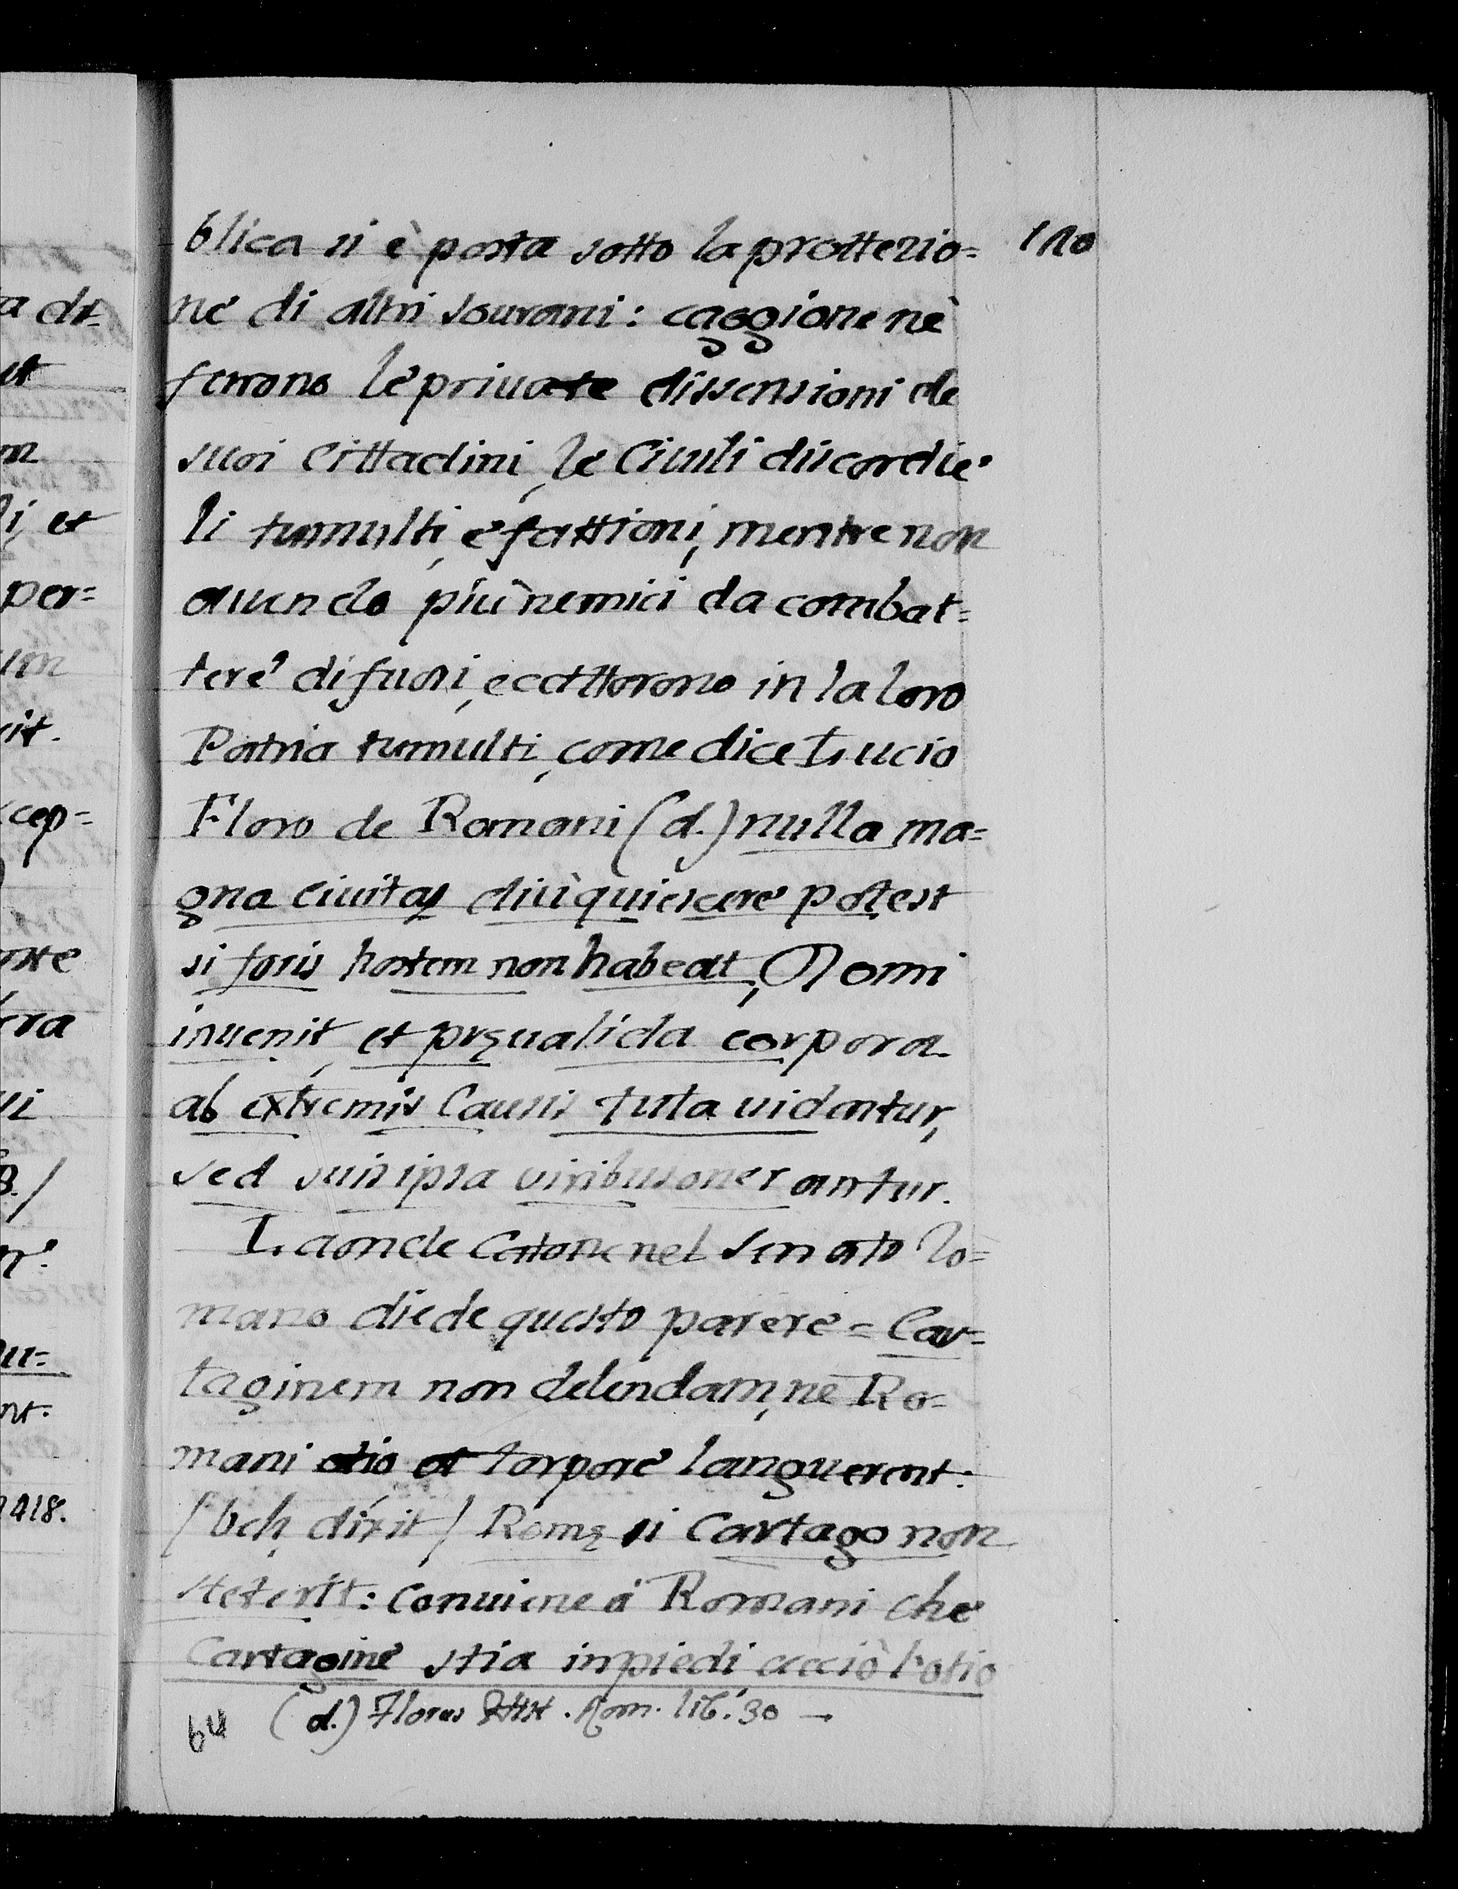 110
blica si è posta sotto la protterio=
ne di altri sourani: caggione nè
ferono lè priuate dissensioni de
suoi Cittadini, le Ciuili discordie
li tumulti, e fattioni, mentre non
auendo più nemici da combat=
terè di fuori, eccittorono in la loro
Patria tumulti, come dice Lucio
Floro de Romani (d.) nulla ma=
gna ciuitas diù quiescere potest
si foris hostem non habeat, Domi
inuenit, et pręualida corpora
ab extremis Causis tuta uidentur,
sed suis ipsa viribus onerantur.
Laonde Catone nel Senato Ro=
mano diede questo parere = Car=
taginem non delendam, ne Ro=
mani otio et torpore languerent:
/ dixit / Romę si Cartago non
steterit: Conuiene à Romani che
Cartagine stia in piedi acciò l'otio
(d.) Florus Hist. Rom. lib. 30
64
a di=
et
m
li, et
per=
um
it.
xcep=
rra
ui
B. /
nt.
1418.